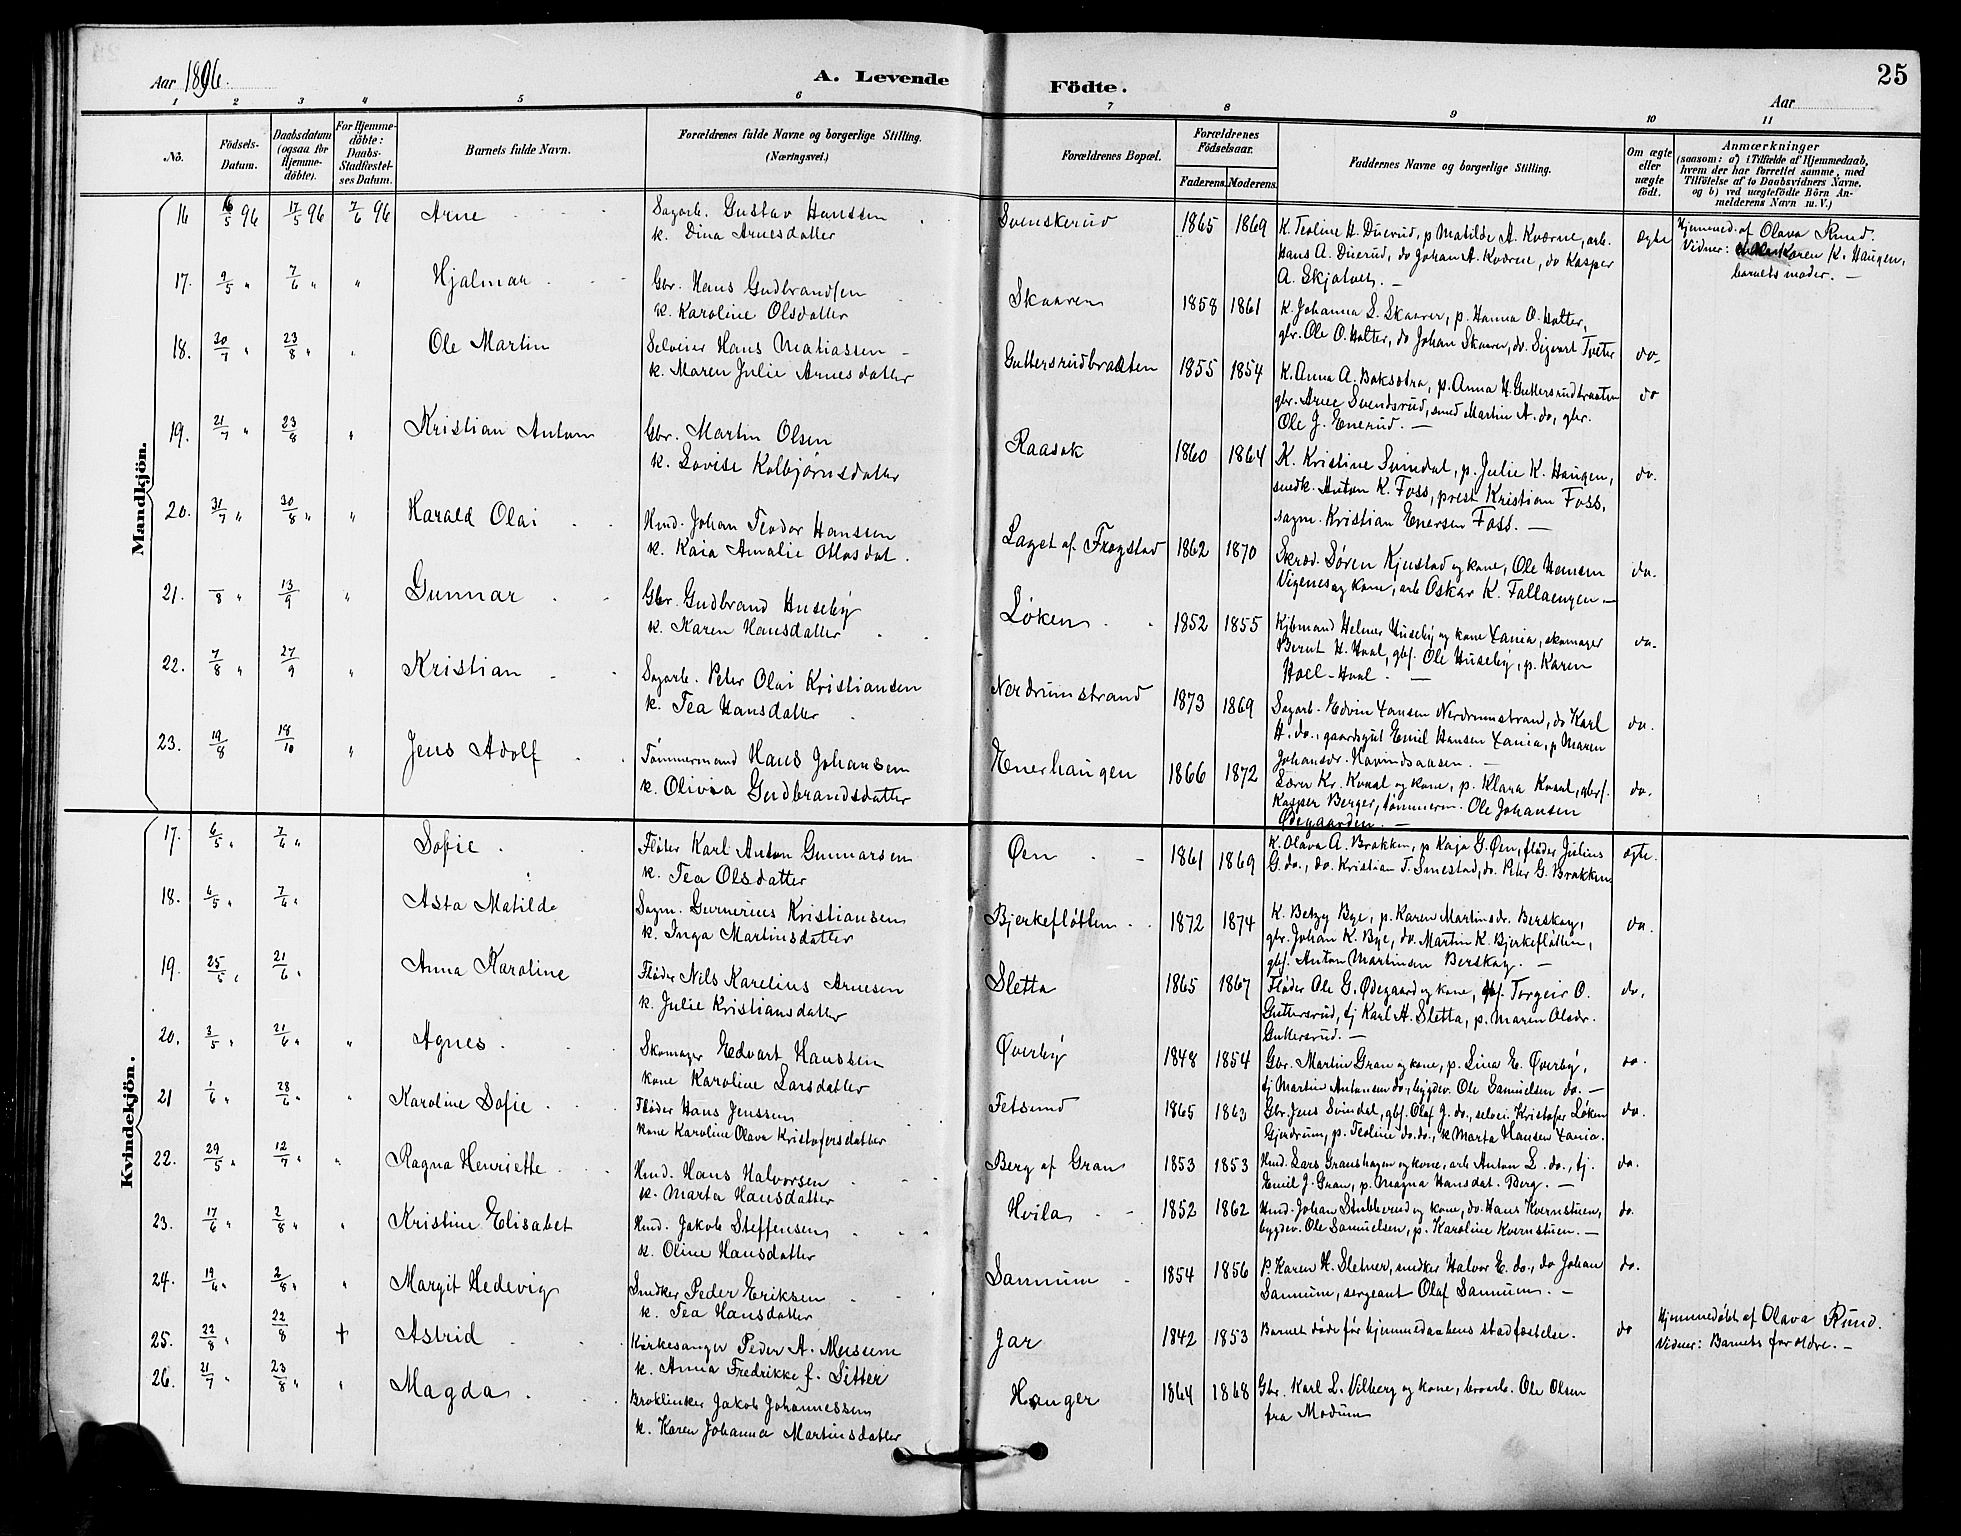 Aar 1896.
A. Levende Födte.
25
Aar
1 2 3 4 5 6 7 8 9 10 11
No.
Födsels-Datum.
Daabsdatum (ogsaa för Hjemmedöbte).
For Hjemmedöbte: Daabs-Stadfæstelses Datum.
Barnets fulde Navn.
Forældrenes fulde Navne og borgerlige Stilling.
(Næringsvei.)
Forældrenes Bopæl.
Forældrenes Födselsaar.
Faderens. Moderens.
Faddernes Navne og borgerlige Stilling.
Om ægte eller uægte födt.
Anmærkninger
(saasom: a) i Tilfælde af Hjemmedaab,
hvem der har forrettet samme, med
Tilföielse af to Daabsvidners Navne,
og b) ved uægtefödte Börn An-
melderens Navn m. V.)
Mandkjön.
16 16/5 96 17/5 96 7/6 96 Arne
Sagarb. Gustav Hanssen
k. Dina Arnesdatter
Svenskerud 1865 1869
K. Teoline H. Duerud, p. Matilde A. Kværne, arb.
Hans A. Duerud, do Johan A. Kværne, do Kasper
A. Skjatvet. —
Ægte
Hjemmed. af Olava Rund.
Vidner: Karen K. Haugen,
barnets moder. —
17. 9/5 " 7/6 " " Hjalmar
Gbr. Hans Gudbrandsen
k. Karoline Olsdatter
Skaaren 1858 1861
K. Johanna L. Skaarer, p. Hanna O. Holter,
gbr. Ole O. Holter, do Johan Skaarer, do. Sigvart Tveter
do.
18. 30/7 " 23/8 " " Ole Martin
Selveier Hans Matiassen
k. Maren Julie Arnesdatter
Guttersrudbraaten 1855 1854
K. Anna A. Baksætra, p. Anna H. Guttersrudbraaten
gbr. Arne Svendsrud, smed Martin A. do, gbr.
Ole J. Enerud. —
do
19. 21/7 " 23/8 " Kristian Anton
Gbr. Martin Olsen
k. Lovise Kolbjørnsdatter
Raasok 1860 1864
K. Kristine Svindal, p. Julie K. Haugen,
snedk. Anton K. Foss, prest Kristian Foss,
sagm. Kristian Enersen Foss. —
do.
20. 31/7 " 30/8 " " Harald Olai
Hmd. Johan Teodor Hanssen
k. Kaia Amalie Olsdat.
Laget af Frogstad 1862 1870
Skræd. Søren Kjustad og kone, Ole Hansen
Vigenes og kone, arb Oskar K. Fallaengen —
do.
21. /8 " 13/9 " Gunnar
Gbr. Gudbrand Huseby
k. Karen Hansdatter
Løken 1852 1855
Kjøbmand Helmer Huseby og kone Xania, skomager
Bernt H. Hval, gbs. Ole Huseby, p. Karen
Hoel-Hval. —
do.
22. 7/8 " 27/9 " Kristian
Sagarb. Peter Olai Kristiansen
k. Tea Hansdatter
Nerdrumstrand 1873 1869
Sagarb. Edvin Hansen Nerdrumstrand, do Karl
H. do., gaardsgut Emil Hansen Xania, p. Maren
Johansdr. Havindsaasen. —
do.
23. 19/8 18/10 " Jens Adolf
Tømmermand Hans Johansen
k. Olivia Gudbrandsdatter
Enerhaugen 1866 1872
Lærer Kr. Kval og kone, p. Klara Kval, gbrs.
Kasper Berger, tømmerm. Ole Johansen
Ødegaarden. —
do.
Kvindekjön.
17. 6/5 " 7/6 " Sofie
Fløter Karl Anton Gunnarsen
k. Tea Olsdatter
Øen 1861 1869
K. Olava A. Brakken, p Kaja G. Øen, fløder Julius
G. do., do. Kristian T. Smestad, do. Peter G. Brakken
ægte.
18. 6/5 " 7/6 " Asta Matilde
Sagm. Gunerius Kristiansen
k. Inga Martinsdatter
Bjerkefløtten 1872 1874
K. Betzy Bye, p. Karen Martinsdr. Berskog,
gbr. Johan K. Bye, do. Martin K. Bjerkefløtten,
gbs. Anton Martinsen Berskog. —
do.
19. 25/5 " 21/6 " Anna Karoline
Fløder Nils Karelius Arnesen
k. Julie Kristiansdatter
Sletta 1865 1867
Fløder Ole G. Ødegaard og kone, gbs. Torgeir O.
Guttersrud, tj Karl A. Sletta, p. Maren Olsdr.
Guttersrud. —
do.
20. 3/5 " 21/6 " " Agnes
Skomager Edvart Hanssen
kone Karoline Larsdatter
Øverby 1848 1854
Gbr. Martin Gran og kone, p. Lina E. Øverby,
tj Martin Antonsen do., bygdev. Ole Samuelsen do. —
do.
21 1/6 " 28/6 " " Karoline Sofie
Fløder Hans Jenssen
kone Karoline Olava Kristofersdatter
Fetsund 1865 1863
Gbr. Jens Svindal, gbs. Olaf J. do., selvei. Kristofer Løken
Gjerdrum, p. Teoline do. do., k Marta Hansen Xania.
do.
22. 29/5 " 12/7 " " Ragna Henriette
Hmd. Hans Halvorsen
k. Marta Hansdatter
Berg af Gran 1853 1853
Hmd. Lars Granshagen og kone, arb Anton L. do., tj.
Emil J. Gran, p. Magna Hansdat. Berg. —
do.
23. 17/6 " 2/8 " " Kristine Elisabet
Hmd. Jakob Steffensen
k. Oline Hansdatter
Hvila 1852 1862
Hmd. Johan Stubberud og kone, do. Hans Kvernstuen,
bygdev. Ole Samuelsen, p. Karoline Kvernstuen. —
do.
24. 19/6 " 2/8 " " Margit Hedevig
Snedker Peder Eriksen
k. Tea Hansdatter
Sannum 1854 1856
P. Karen H. Sletner, snedker Halvor E. do., do Johan
Sannum, sergeant Olaf Sannum. —
do.
25. 22/8 " 22/8 + Astrid
Kirkesanger Peder A. Mesum
k. Anna Fredrikke f. Sitter
Jar 1842 1853
Barnet døde før hjemmedaabens stadfæstelse.
do
Hjemmedøbt af Olava Rund.
Vidner: Barnets forældre. —
26. 21/7 " 23/8 " " Magda
Broklinker Jakob Johannessen
k. Karen Johanna Martinsdatter
Hanger 1864 1868
Gbr. Karl L. Vilberg og kone, broarb. Ole Olsen
fra Modum